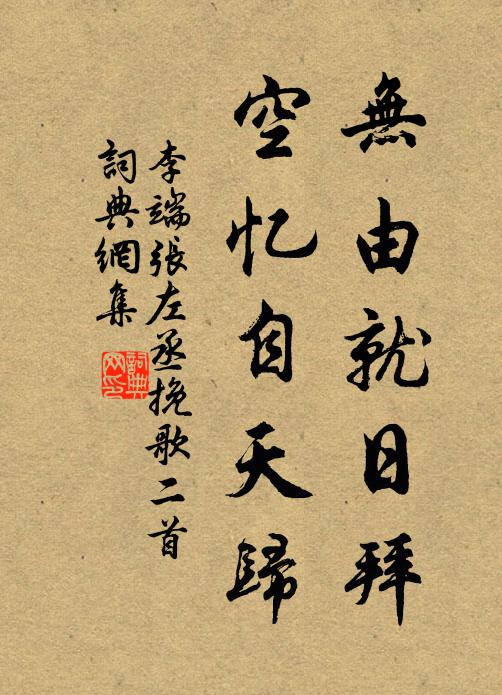 無由就日拜
空忆自天歸
李端張左丞挽歌二首
詞典網集
詞典网印